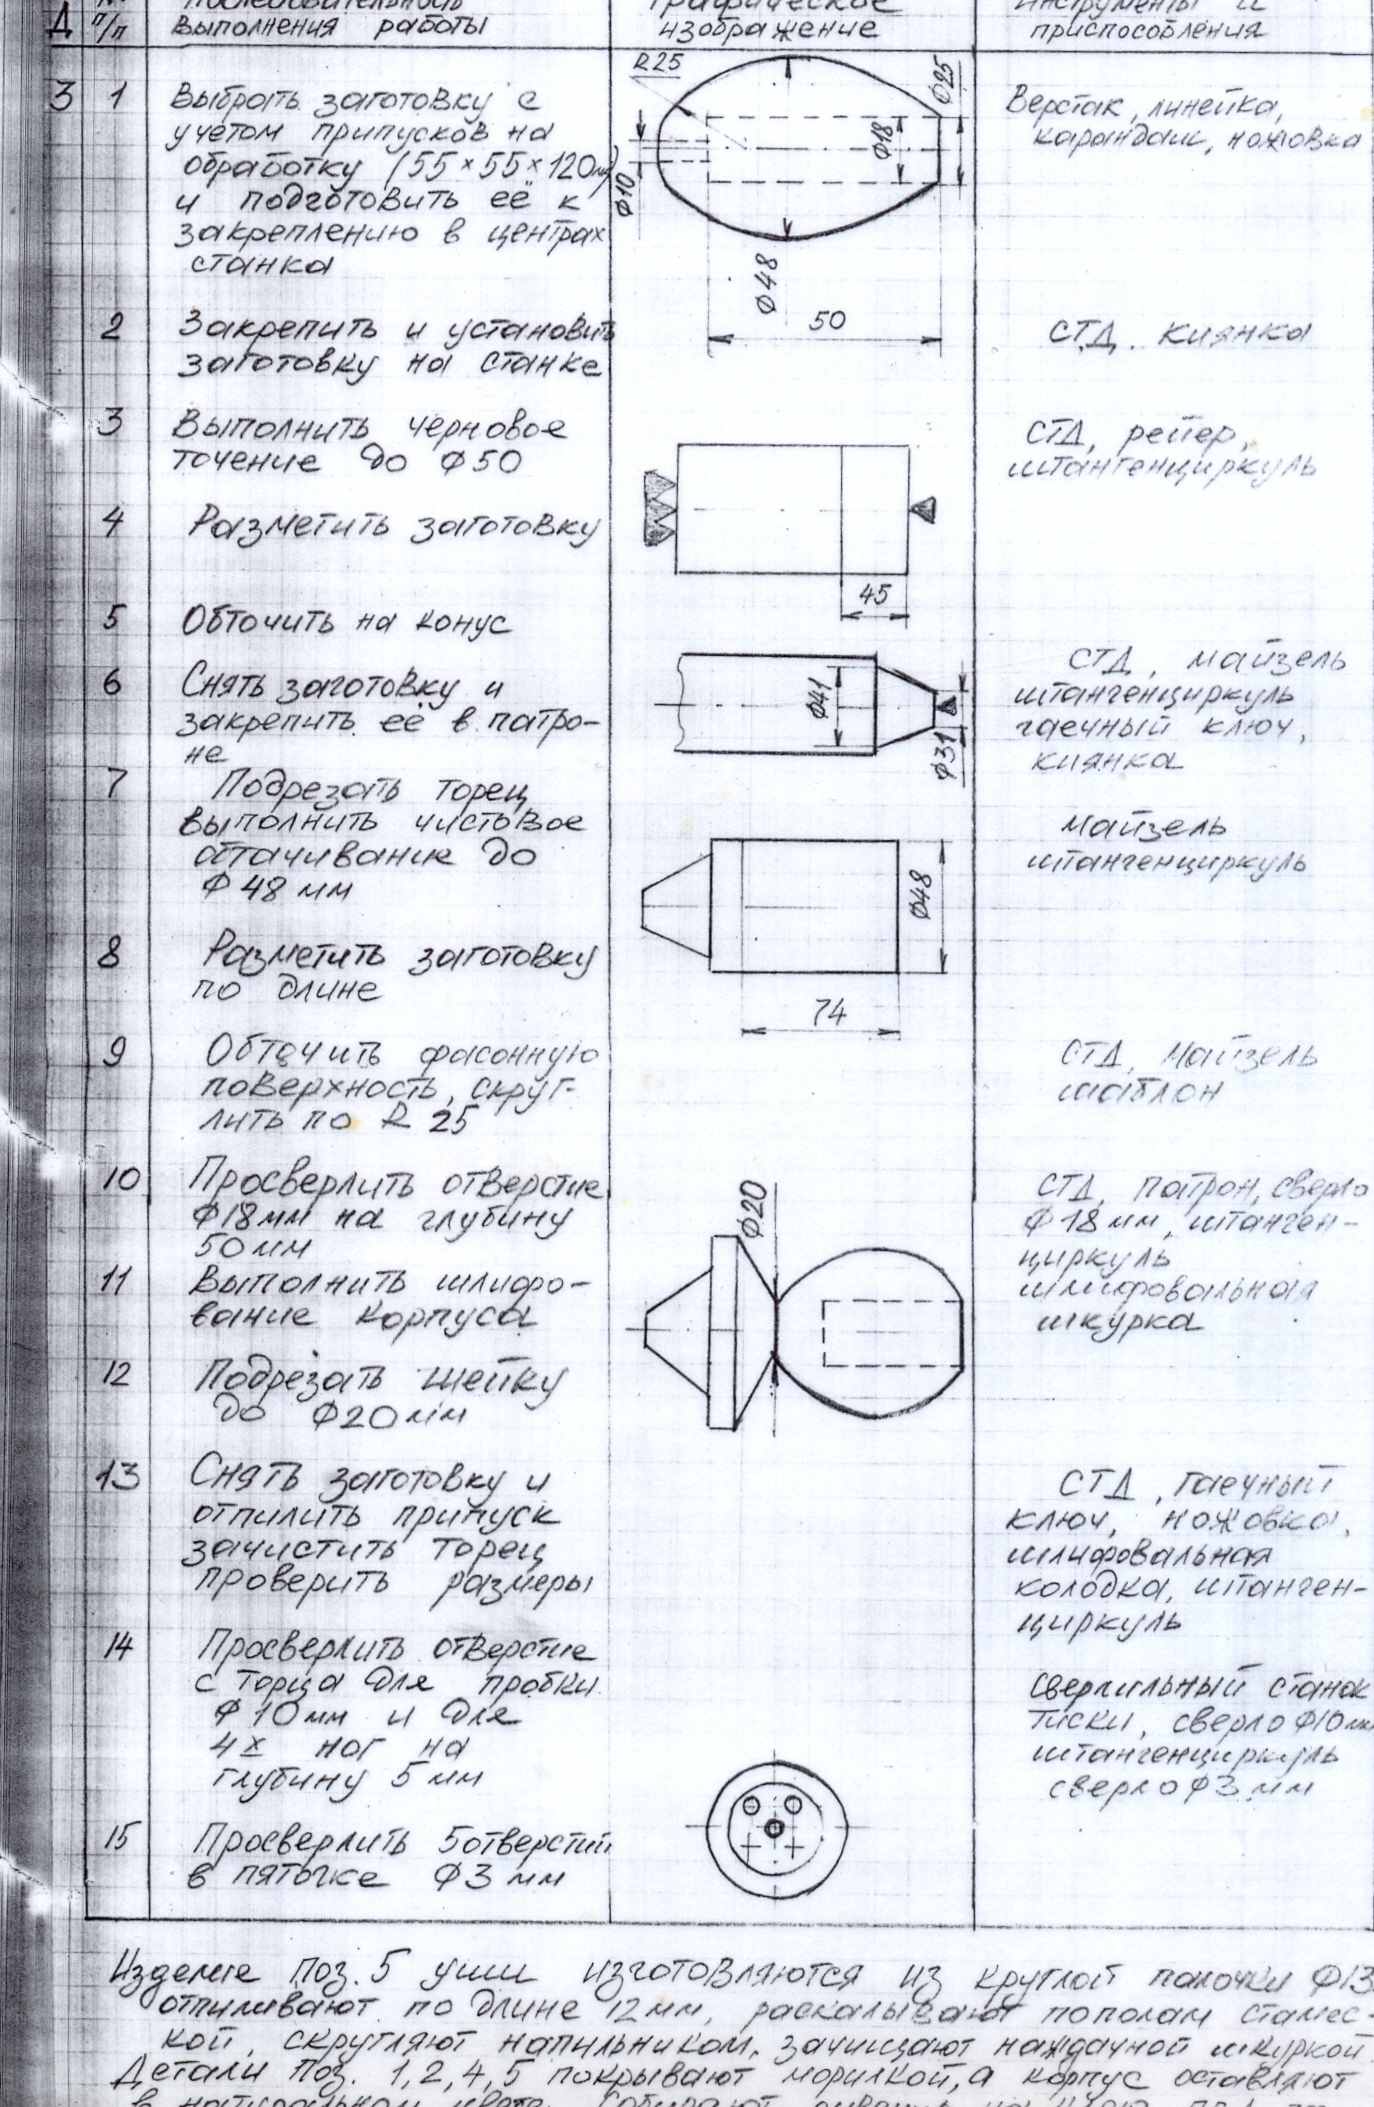 Д
п/п
Последовательность
выполнения работы
Графическое
изображение
Инструменты и
приспособления
3
1
Выбрать заготовку с
учётом припусков на
обработку (55×55×120мм)
и подготовить её к
закреплению в центрах
станка
R25
Ф25
Ф18
Ф10
Ф48
50
Верстак, линейка,
карандаш, ножовка
2
Закрепить и установить
заготовку на станке
СТД. киянка
3
Выполнить черновое
точение до Ф50
СТД, рейер,
штангенциркуль
4
Разметить заготовку
45
5
Обточить на конус
СТД, майзель
штангенциркуль
гаечный ключ,
киянка
6
Снять заготовку и
закрепить её в патро-
не
Ф41
Ф31
7
Подрезать торец
выполнить чистовое
обтачивание до
Ф48 мм
Ф48
74
майзель
штангенциркуль
8
Разметить заготовку
по длине
9
Обточить фасонную
поверхность, скруг-
лить по R 25
СТД, майзель
шаблон
10
Просверлить отверстие
Ф18мм на глубину
50мм
Ф20
СТД, патрон, сверло
Ф18 мм, штанген-
циркуль
шлифовальная
шкурка
11
Выполнить шлифо-
вание корпуса
12
Подрезать шейку
до Ф20мм
13
Снять заготовку и
отпилить припуск
зачистить торец
проверить размеры
СТД, гаечный
ключ, ножовка,
шлифовальная
колодка, штанген-
циркуль
14
Просверлить отверстие
с торца для пробки
Ф10мм и для
4х ног на
глубину 5мм
сверлильный станок
тиски, сверло Ф10мм
штангенциркуль
сверло Ф3 мм
15
Просверлить 5отверстий
в пяточке Ф3мм
Изделие поз. 5 уши изготовляются из круглой палочки Ф13
отпиливают по длине 12мм, раскалывают пополам стамес-
кой, скругляют напильником, зачищают наждачной шкуркой
Детали поз. 1,2,4,5 покрывают морилкой, а корпус оставляют
в натуральном цвете. Собирают